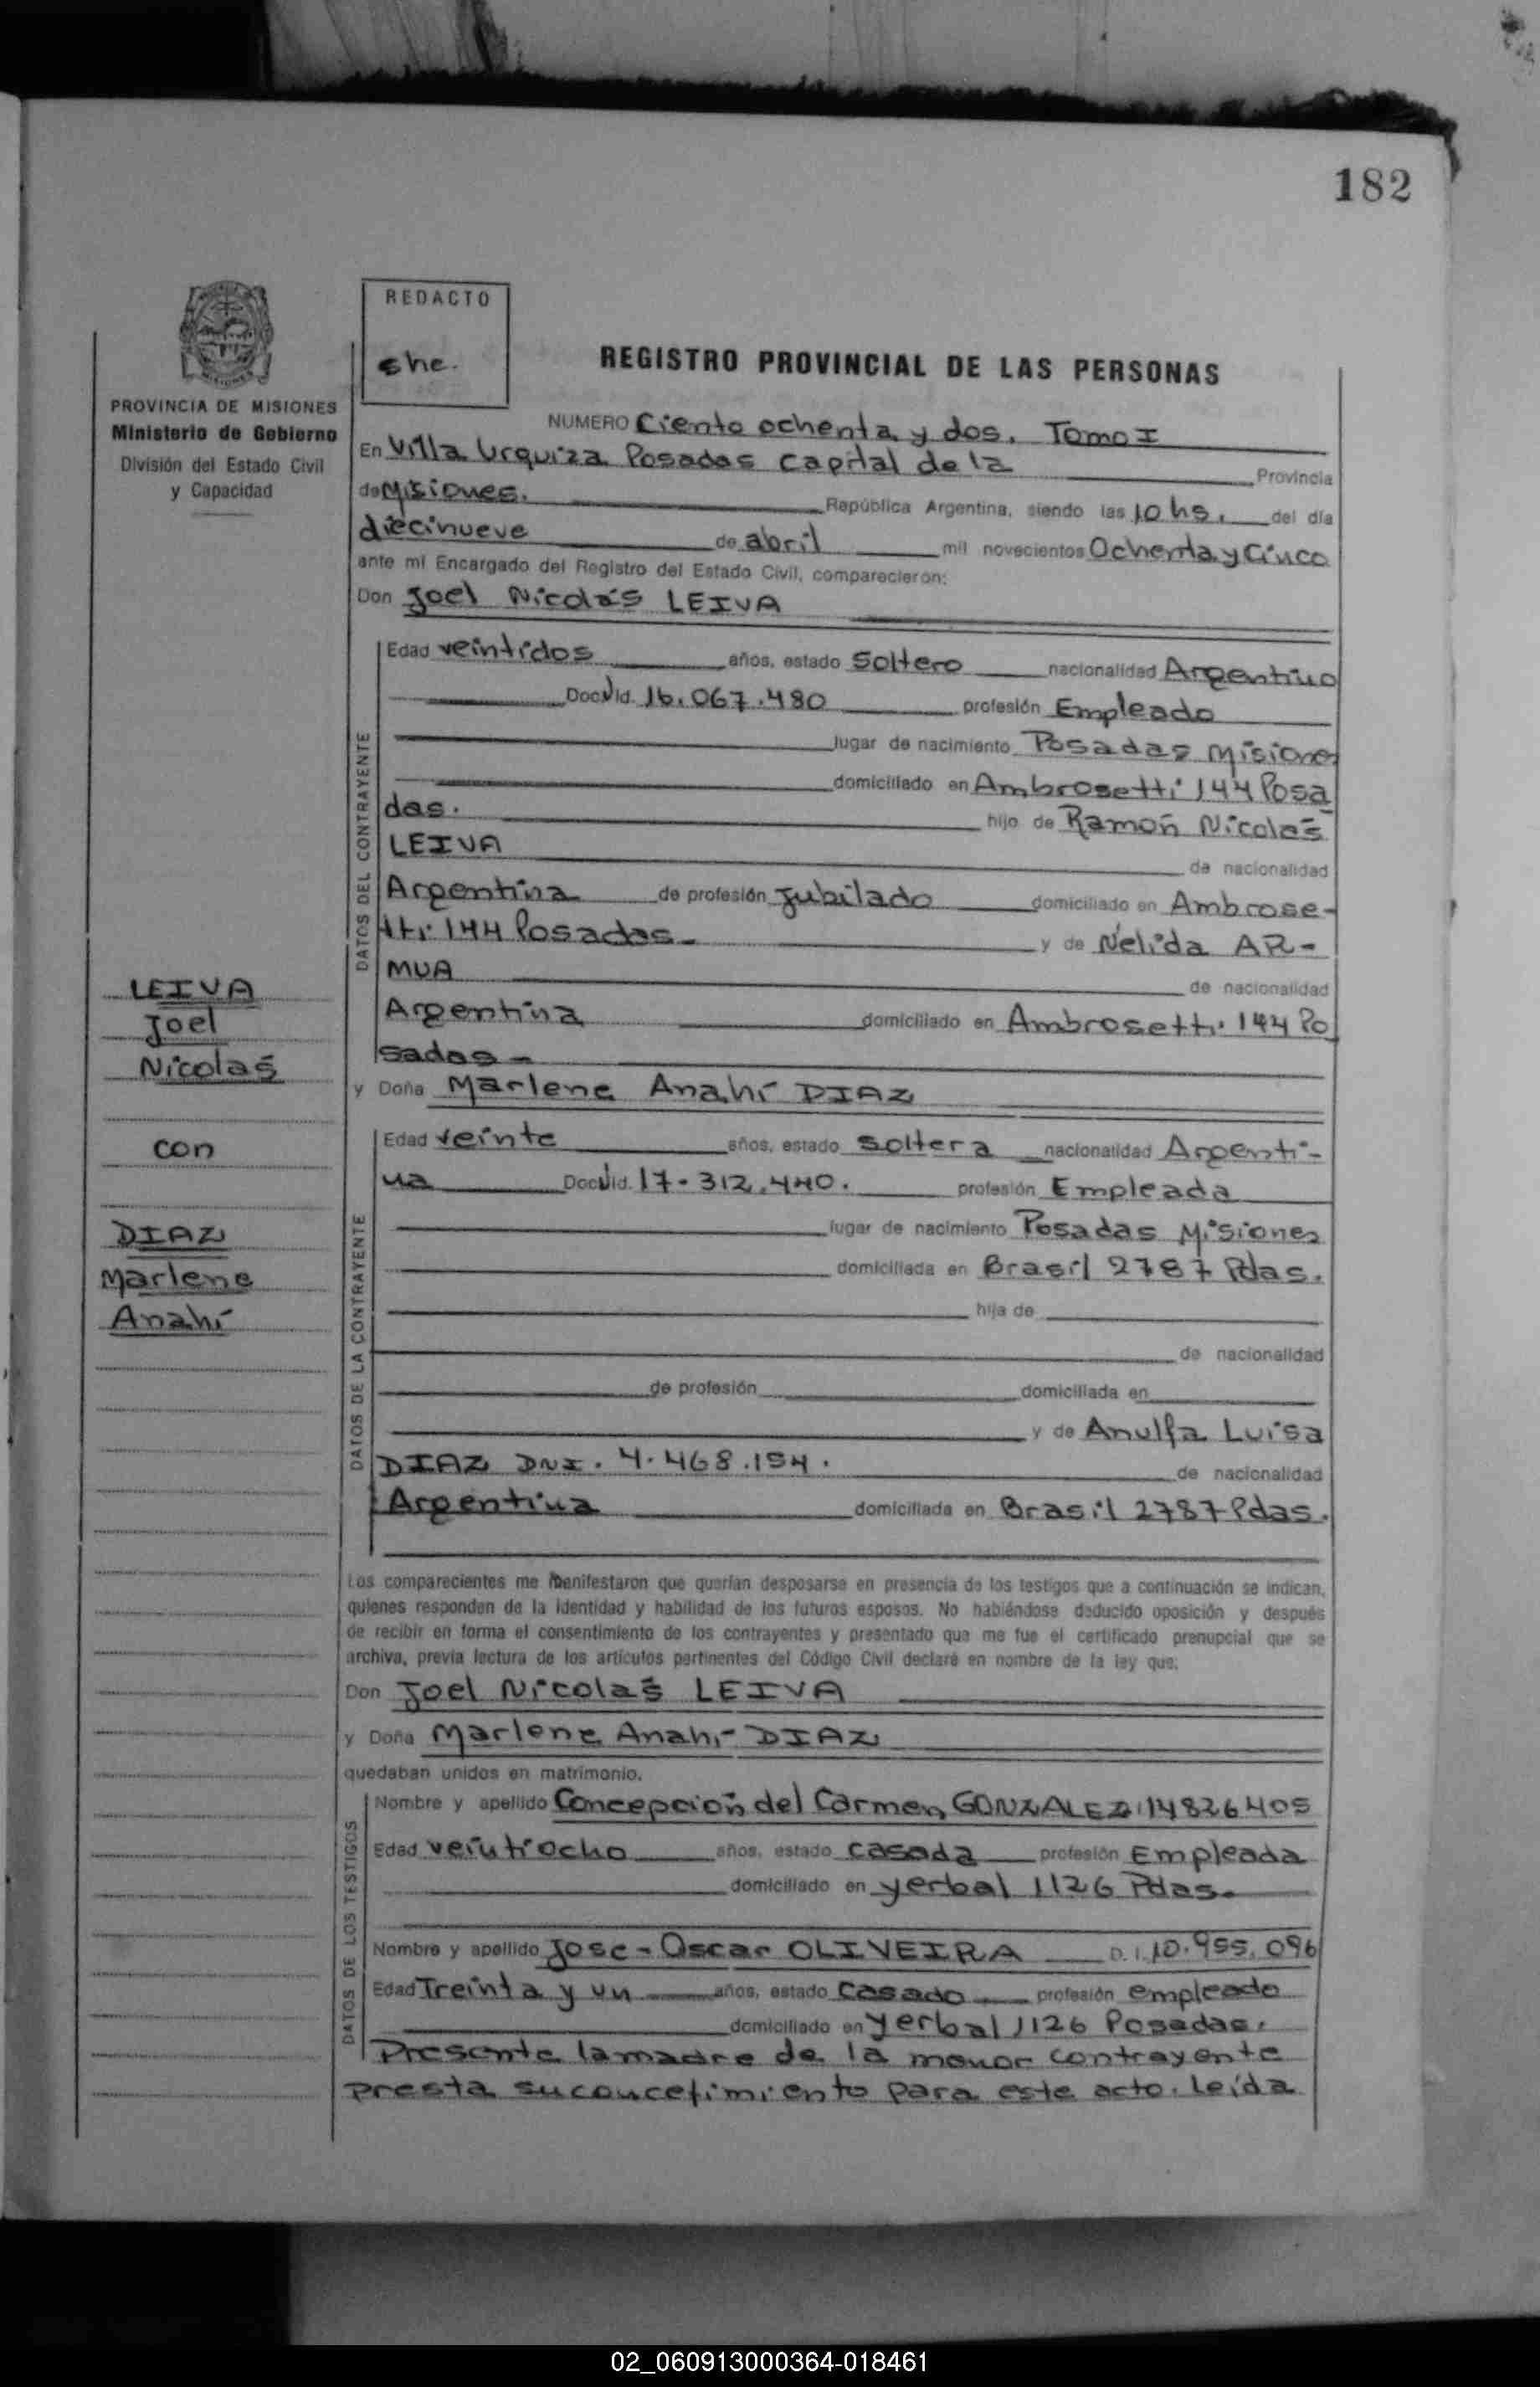 182
REDACTO
she.
REGISTRO PROVINCIAL DE LAS PERSONAS
PROVINCIA DE MISIONES
Ministerio de Gobierno
División del Estado Civil
y Capacidad
NUMERO Ciento ochenta y dos. Tomo I
En Villa Urquiza Posadas Capital de la Provincia
de Misiones. República Argentina, siendo las 10 hs. del día
diecinueve de abril mil novecientos Ochenta y Cinco
ante mi Encargado del Registro del Estado Civil, comparecieron:
Don Joel Nicolás LEIVA
DATOS DEL CONTRAYENTE
Edad veintidos años, estado Soltero nacionalidad Argentino
Doc. Id. 16.067.480 profesión Empleado
lugar de nacimiento Posadas Misiones
domiciliado en Ambrosetti 144 Posa
das. hijo de Ramón Nicolás
LEIVA de nacionalidad
Argentina de profesión Jubilado domiciliado en Ambrose-
tti 144 Posadas- y de Nélida AR-
MUA de nacionalidad
Argentina domiciliado en Ambrosetti 144 Po
sadas-
y Doña Marlene Anahí DIAZ
DATOS DE LA CONTRAYENTE
Edad veinte años, estado Soltera nacionalidad Argenti-
na Doc. Id. 17.312.440. profesión Empleada
lugar de nacimiento Posadas Misiones
domiciliada en Brasil 2787 Pdas.
hija de
de nacionalidad
de profesión domiciliada en
y de Anulfa Luisa
DIAZ DNI. 4.468.154. de nacionalidad
Argentina domiciliada en Brasil 2787 Pdas.
Los comparecientes me manifestaron que querían desposarse en presencia de los testigos que a continuación se indican,
quienes responden de la identidad y habilidad de los futuros esposos. No habiéndose deducido oposición y después
de recibir en forma el consentimiento de los contrayentes y presentado que me fue el certificado prenupcial que se
archiva, previa lectura de los artículos pertinentes del Código Civil declaré en nombre de la ley que:
Don Joel Nicolás LEIVA
y Doña Marlene Anahí DIAZ
quedaban unidos en matrimonio.
DATOS DE LOS TESTIGOS
Nombre y apellido Concepción del Carmen GONZALEZ 14826405
Edad veintiocho años, estado casada profesión Empleada
domiciliado en yerbal 1126 Pdas.
Nombre y apellido Jose-Oscar OLIVEIRA D.I. 10.955.096
Edad Treinta y un años, estado Casado profesión empleado
domiciliado en yerbal 1126 Posadas.
Presente la madre de la menor contrayente
presta su concetimiento para este acto. Leída
LEIVA
Joel
Nicolás
con
DIAZ
Marlene
Anahí
02_060913000364-018461